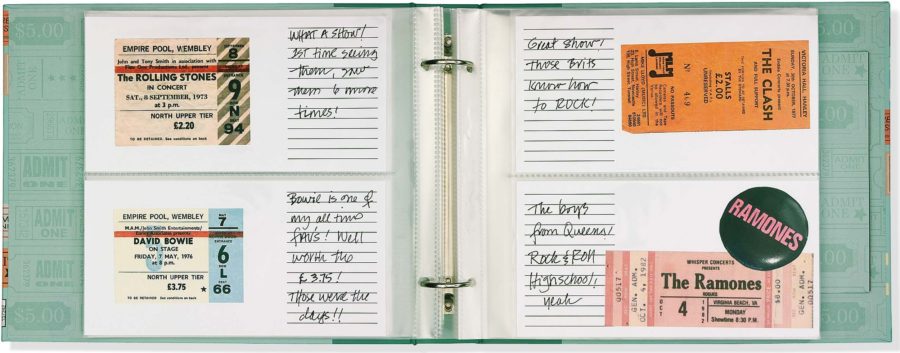 $5.00
EMPIRE POOL, WEMBLEY
John and Tony Smith in association with
The ROLLING STONES
IN CONCERT
SAT., 8 SEPTEMBER, 1973
at 3 p.m.
NORTH UPPER TIER
£2.20
TO BE RETAINED. See conditions on back
SEPTEMBER
8
ENTRANCE
9
N
94
WHAT A SHOW!
1st time seeing
them, saw
them 6 more
times!
EMPIRE POOL, WEMBLEY
M.A.M./John Smith Entertainments/
DAVID BOWIE
ON STAGE
FRIDAY, 7 MAY, 1976
at 8 p.m.
NORTH UPPER TIER
£3.75
TO BE RETAINED. See conditions on back
7
ENTRANCE
6
L
66
Bowie is one of
my all time
FAV'S! Well
worth the
£3.75!
Those were the
days!!
Great show!
Those Brits
know how
to ROCK!
VICTORIA HALL, HANLEY
SUNDAY, 30th OCTOBER, 1977
at 7.30 p.m.
THE CLASH
AND FULL SUPPORT
STALLS
£2.00
UNRESERVED
The boys
from Queens!
Rock & Roll
Highschool,
yeah
RAMONES
OCT. 4, 1982
WHISPER CONCERTS
PRESENTS
The Ramones
OCT
4
1982
VIRGINIA BEACH, VA
MONDAY
Showtime 8:30 P.M.
ADMIT
ONE
ADMIT
ONE
$5.00
$5.00